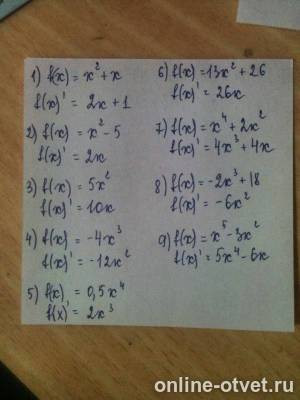 1) f(x) = x² + x
f(x)' = 2x + 1
2) f(x) = x² - 5
f(x)' = 2x
3) f(x) = 5x²
f(x)' = 10x
4) f(x) = -4x³
f(x)' = -12x²
5) f(x) = 0,5x⁴
f(x)' = 2x³
6) f(x) = 13x² + 26
f(x)' = 26x
7) f(x) = x⁴ + 2x²
f(x)' = 4x³ + 4x
8) f(x) = -2x³ + 18
f(x)' = -6x²
9) f(x) = x⁵ - 3x²
f(x)' = 5x⁴ - 6x
online-otvet.ru